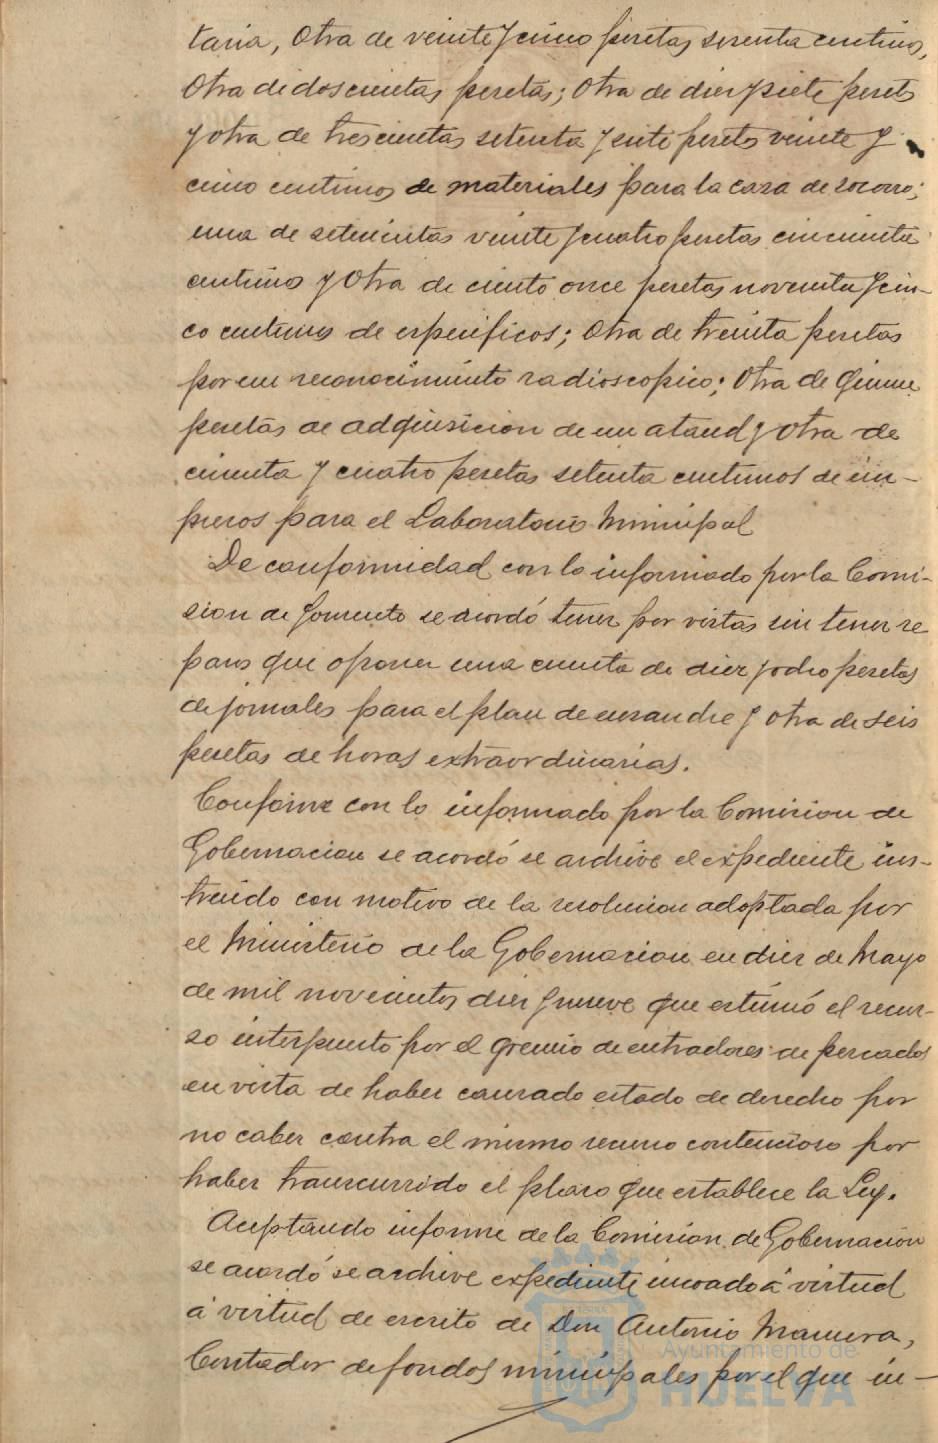 taria, Otra de veinte y cinco pesetas sesenta centimos,
Otra de doscientas pesetas; Otra de diez y siete pesetas
y otra de trescientas setenta y siete pesetas veinte y
cinco centimos de materiales para la casa de socorro;
una de setecientas veinte y cuatro pesetas cincuenta
centimos y Otra de ciento once pesetas noventa y cin-
co centimos de especificos; Otra de treinta pesetas
por un reconocimiento radioscopico; Otra de Quince
pesetas de adquisicion de un ataud y otra de
cincuenta y cuatro pesetas setenta centimos de im-
presos para el Laboratorio Municipal
De conformidad con lo informado por la Comi-
sion de Fomento se acordó tener por vistas sin tener re
paros que oponer una cuenta de diez y ocho pesetas
de jornales para el plan de ensanche y otra de seis
pesetas de horas extraordinarias.
Conforme con lo informado por la Comision de
Gobernacion se acordó se archive el expediente ins-
truido con motivo de la resolucion adoptada por
el Ministerio de la Gobernacion en diez de Mayo
de mil novecientos diez y nueve que estimó el recur-
so interpuesto por el gremio de entradores de pescados
en vista de haber causado estado de derecho por
no caber contra el mismo recurso contencioso por
haber transcurrido el plazo que establece la Ley.
Aceptando informe de la Comision de Gobernación
se acordó se archive expediente incoado á virtud
á virtud de escrito de Don Antonio
Contador de fondos municipales por el que in-
Ayuntamiento de
HUELVA